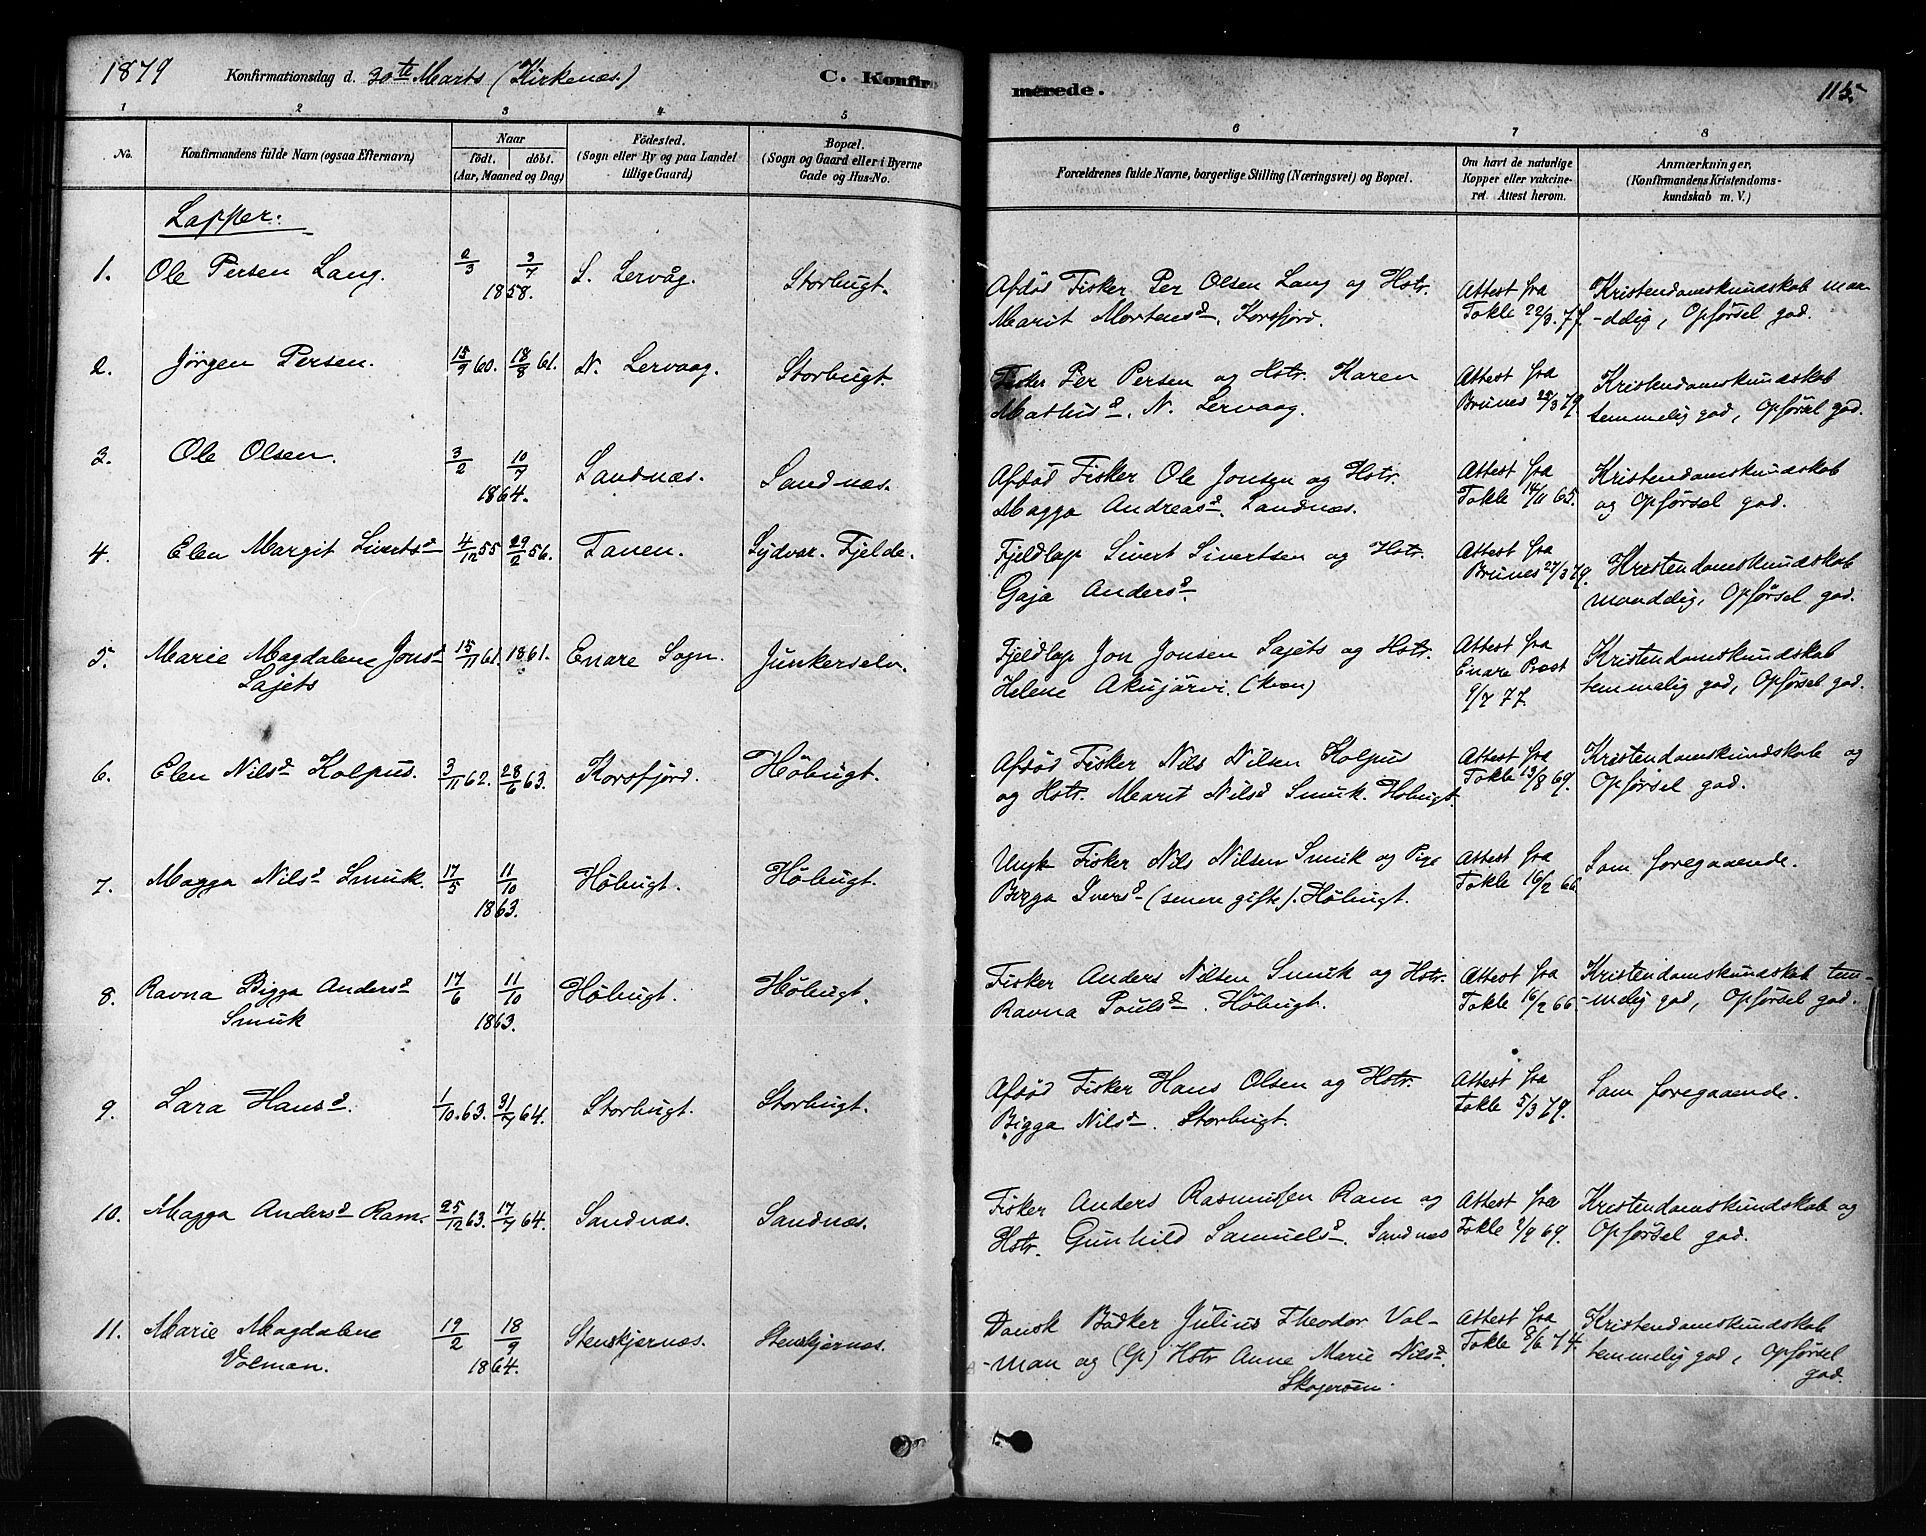 1879 Konfirmationsdag d. 30te Marts (Kirkenæs.) C. Konfirmerede. 115.
1 2 3 4 5 6 7 8
No. Konfirmandens fulde Navn (ogsaa Efternavn) Naar født. døbt. (Aar, Maaned og Dag) Födested. (Sogn eller By og paa Landet tillige Gaard) Bopæl. (Sogn og Gaard eller i Byerne Gade og Hus-No. Forældrenes fulde Navne, borgerlige Stilling (Næringsvei) og Bopæl. Om havt de naturlige Kopper eller vakcineret. Attest herom. Anmærkninger. (Konfirmandens Kristendomskundskab m. V.)
Lapper:
1. Ole Persen Lang. 2/3 3/7 1858. S. Lervåg. Storbugt. Afdød Fisker Per Olsen Lang og Hstr. Attest fra Kristendomskundskab maa-
Marit Mortensd. Korsfjord. Fokle 22/3.77. -delig, Opførsel god.
2. Jörgen Persen. 15/9 60. 18/8 61. N. Lervaag. Storbugt. Fisker Per Persen og Hstr. Karen Attest fra Kristendomskundskab
Mathisd. N. Lervaag. Brunes 28/3 79. temmelig god, Opførsel god.
3. Ole Olsen. 3/2 10/7 1864. Sandnæs. Sandnæs. Afdød Fisker Ole Jonsen og Hstr. Attest fra Kristendomskundskab
Magga Andreasd. Sandnæs. Fokle 14/11 65. og Opførsel god.
4. Elen Margit Sivertsd 4/12 55 29/2 56. Tanen. Sydvar. Fjelde. Fjeldlap Sivert Sivertsen og Hstr. Attest fra Kristendomskundskab
Gaja Andersd. Brunes 27/3 79. maadelig, Opførsel god.
5. Marie Magdalene Jonsd 15/11 61. 1861. Enare Sogn. Junkerselv. Fjeldlap Jon Jonsen Sajets og Hstr. Attest fra Kristendomskundskab
Sajets Helene Akujärvi. (Kvæn) Enare Præst temmelig god, Opførsel god.
9/7 77.
6. Elen Nilsd Kolpus. 3/11 62. 28/6 63. Korsfjord. Höbugt. Afdød Fisker Nils Nilsen Kolpus Attest fra Kristendomskundskab og
og Hstr. Marit Nilsd Smuk. Höbugt. Fokle 13/8 69. Opførsel god.
7. Magga Nilsd Smuk. 17/5 11/10 1863. Höbugt. Höbugt. Ungk Fisker Nils Nilsen Smuk og Pige Attest fra Som foregaaende.
Birga Iversd (senere gifte). Höbugt. Fokle 16/2 66.
8. Ravna Bigga Andersd 17/6 11/10 1863. Höbugt. Höbugt. Fisker Anders Nilsen Smuk og Hstr. Attest fra Kristendomskundskab tem-
Smuk Ravna Poulsd. Höbugt. Fokle 16/2 66. -melig god, Opførsel god.
9. Lara Hansd. 1/10.63. 31/7 64. Storbugt. Storbugt. Afdød Fisker Hans Olsen og Hstr. Attest fra Som foregaaende.
Bigga Nilsd. Storbugt. Fokle 5/3 79.
10. Magga Andersd Ram. 25/12 63. 17/7 64. Sandnæs. Sandnæs. Fisker Anders Rasmussen Ram og Attest fra Kristendomskundskab og
Hstr. Gunhild Samuelsd. Sandnæs Fokle 2/9 69. Opførsel god.
11. Marie Magdalene 19/2 18/9 1864. Stenskjernæs. Stenskjernæs. Dansk Bødker Julius Theodor Vol- Attest fra Kristendomskundskab
Volman. -man og (lp) Hstr Anne Marie Nilsd. Fokle 8/6 74. temmelig god, Opførsel
Skogerøen. god.